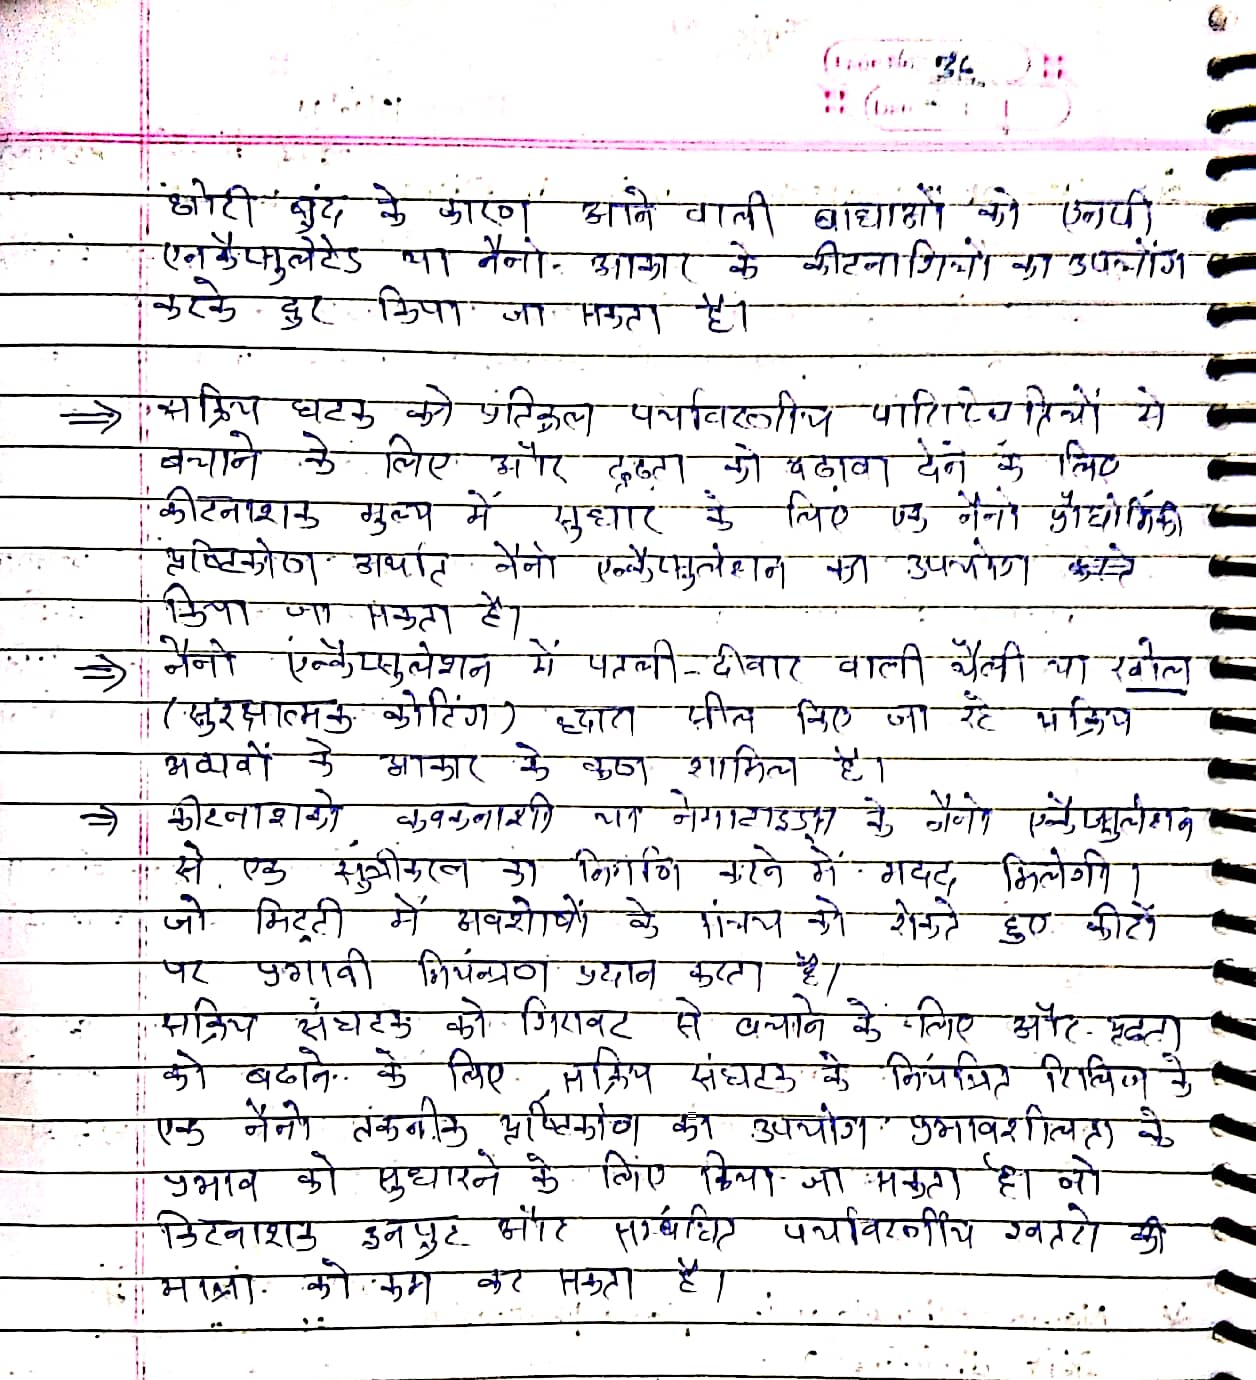 36
छोटी बुंद के कारण आने वाली बाधाओं को एनपी
एनकैप्सुलेटेड या नैनो. आकार के कीटनाशियों का उपयोग
करके दुर किया जा सकता है।
⇒ सक्रिय घटक को प्रतिकुल पर्यावरणीय पारिस्थितियों से
बचाने के लिए और दृढता को बढावा देने के लिए
कीटनाशक मुल्य में सुधार के लिए एक नैनो प्रौद्योगिकी
दृष्टिकोण अर्थात नैनो एन्कैप्सुलेशन का उपयोग करते
किया जा सकता है।
⇒ नैनो एन्कैप्सुलेशन में पतली-दीवार वाली थैली या खोल
(सुरक्षात्मक कोटिंग) द्वारा सील किए जा रहे सक्रिय
अवयवों के आकार के कण शामिल है।
⇒ कीटनाशको कवकनाशी या नेमाटाइड्स के नैनो एन्कैप्सुलेशन
से एक सुत्रीकरण का निर्माण करने में मदद मिलेगी।
जो मिट्टी में अवशेषों के संचय को रोकते हुए कीटों
पर प्रभावी नियंन्त्रण प्रदान करता है।
सक्रिय संघटक को गिरावट से बचाने के लिए और दृढता
को बढाने के लिए सक्रिय संघटक के नियंत्रित रिलिज के
एक नैनो तकनीक दृष्टिकोण का उपयोग प्रभावशीलता के
प्रभाव को सुधारने के लिए किया जा सकता है। जो
किटनाशक इनपुट और सम्बंधित पर्यावरणीय खतरो की
मात्रा को कम कर सकता है।